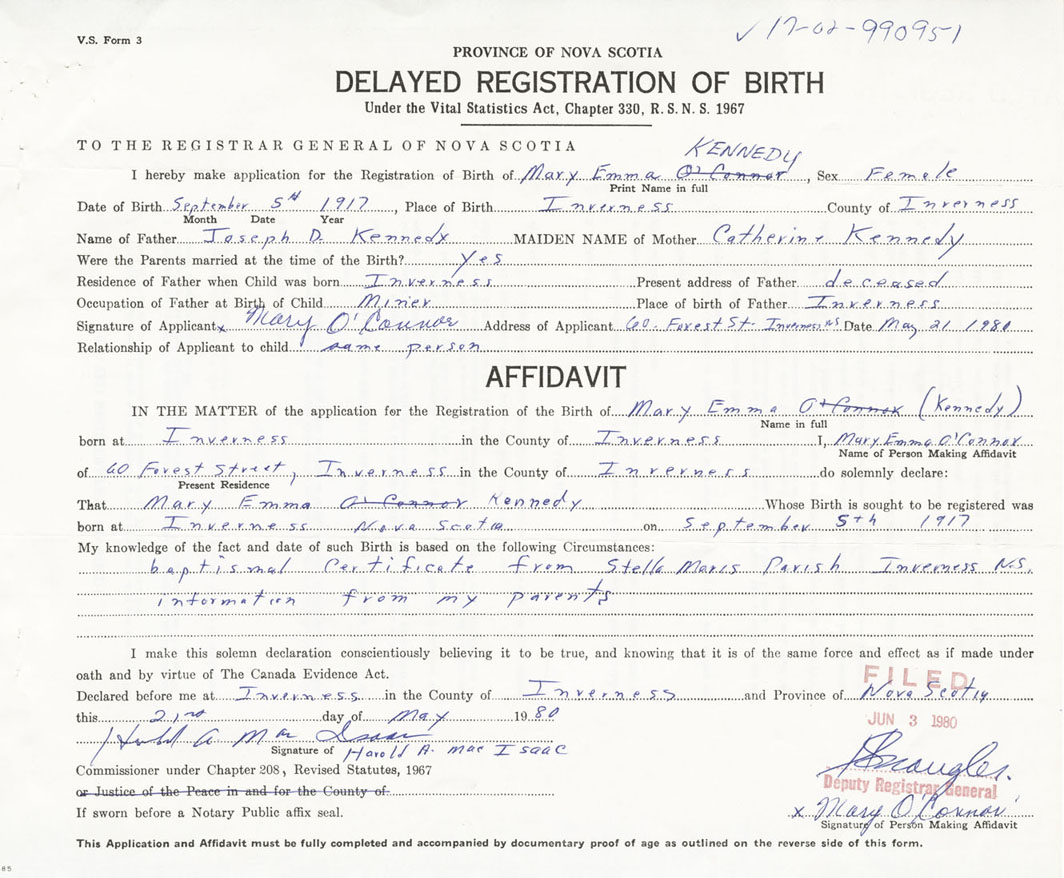 V.S. Form 3
✓ 17-02-990951
PROVINCE OF NOVA SCOTIA
DELAYED REGISTRATION OF BIRTH
Under the Vital Statistics Act, Chapter 330, R.S.N.S. 1967
TO THE REGISTRAR GENERAL OF NOVA SCOTIA
KENNEDY
I hereby make application for the Registration of Birth of Mary Emma O'Connor, Sex Female
Print Name in full
Date of Birth September 5th 1917, Place of Birth Inverness County of Inverness
Month Date Year
Name of Father Joseph D. Kennedy MAIDEN NAME of Mother Catherine Kennedy
Were the Parents married at the time of the Birth? Yes
Residence of Father when Child was born Inverness Present address of Father deceased
Occupation of Father at Birth of Child Miner Place of birth of Father Inverness
Signature of Applicant x Mary O'Connor Address of Applicant 60. Forest St. Inverness NS Date May 21 1980
Relationship of Applicant to child same person
AFFIDAVIT
IN THE MATTER of the application for the Registration of the Birth of Mary Emma O'Connor (Kennedy)
Name in full
born at Inverness in the County of Inverness I, Mary Emma O'Connor
Name of Person Making Affidavit
of 60 Forest Street, Inverness in the County of Inverness do solemnly declare:
Present Residence
That Mary Emma O'Connor Kennedy Whose Birth is sought to be registered was
born at Inverness Nova Scotia on September 5th 1917
My knowledge of the fact and date of such Birth is based on the following Circumstances:
baptismal Certificate from Stella Maris Parish Inverness N.S.
information from my parents
I make this solemn declaration conscientiously believing it to be true, and knowing that it is of the same force and effect as if made under
oath and by virtue of The Canada Evidence Act.
FILED
Declared before me at Inverness in the County of Inverness and Province of Nova Scotia
this 21 day of May 1980
JUN 3 1980
Harold A Mac Isaac
Signature of Harold A. Mac Isaac
Commissioner under Chapter 208, Revised Statutes, 1967
or Justice of the Peace in and for the County of
Deputy Registrar General
If sworn before a Notary Public affix seal.
x Mary O'Connor
Signature of Person Making Affidavit
This Application and Affidavit must be fully completed and accompanied by documentary proof of age as outlined on the reverse side of this form.
85